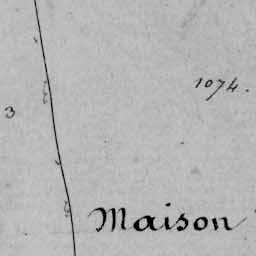 1074.
3
Maison